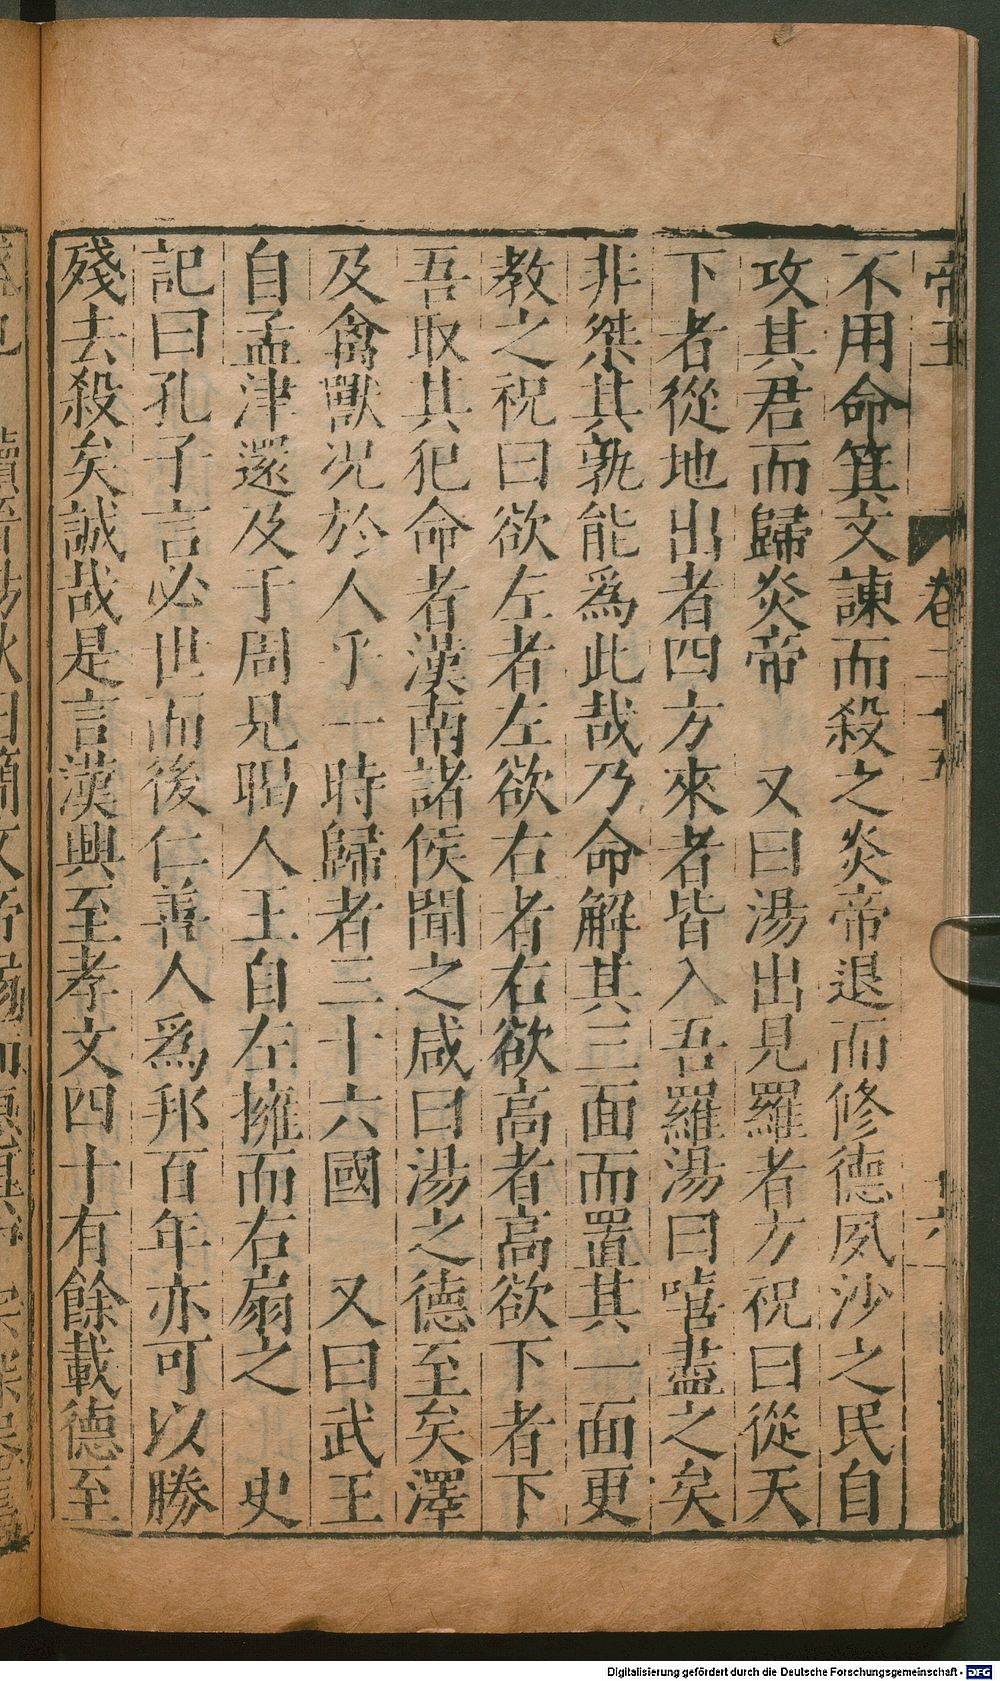 帝王 卷二十五 六
不用命箕文諫而殺之炎帝退而修德夙沙之民自
攻其君而歸炎帝 又曰湯出見羅者方祝曰從天
下者從地出者四方來者皆入吾羅湯曰嘻盡之矣
非桀其孰能爲此哉乃命解其三面而置其一面更
教之祝曰欲左者左欲右者右欲高者高欲下者下
吾取其犯命者漢南諸侯聞之咸曰湯之德至矣澤
及禽獸況於人乎一時歸者三十六國 又曰武王
自孟津還及于周見暍人王自左擁而右扇之 史
記曰孔子言必世而後仁善人爲邦百年亦可以勝
殘去殺矣誠哉是言漢興至孝文四十有餘載德至
Digitalisierung gefördert durch die Deutsche Forschungsgemeinschaft - DFG